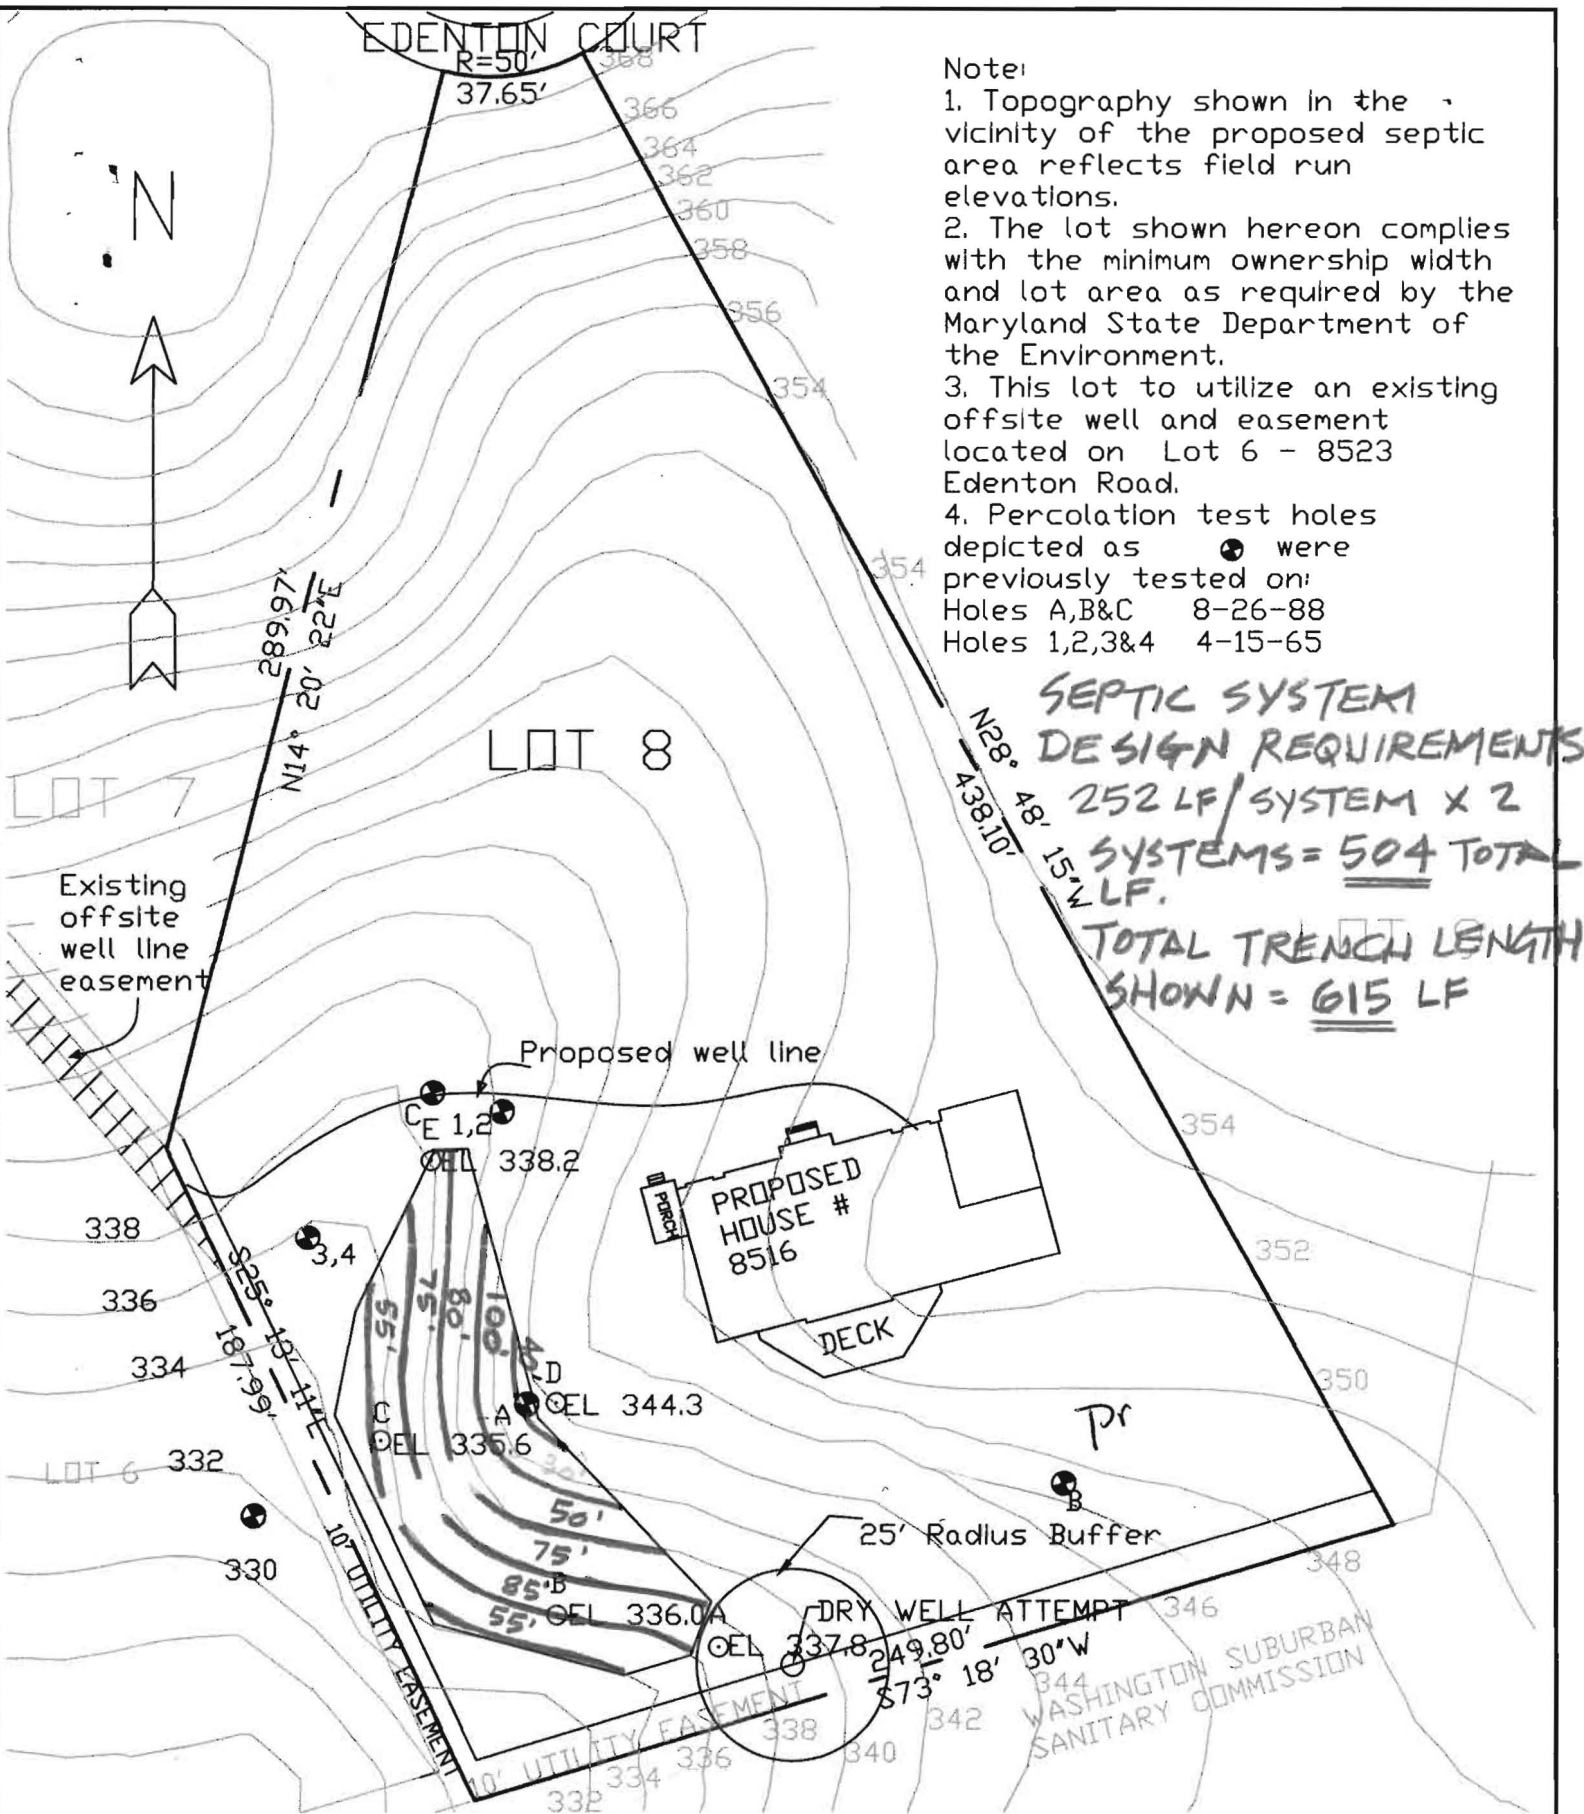 EDENTON COURT
R=50'
37.65'
368
366
364
362
360
358
356
354
N
Note:
1. Topography shown in the
vicinity of the proposed septic
area reflects field run
elevations.
2. The lot shown hereon complies
with the minimum ownership width
and lot area as required by the
Maryland State Department of
the Environment.
3. This lot to utilize an existing
offsite well and easement
located on Lot 6 - 8523
Edenton Road.
4. Percolation test holes
depicted as were
previously tested on:
Holes A,B&C 8-26-88
Holes 1,2,3&4 4-15-65
354
SEPTIC SYSTEM
DESIGN REQUIREMENTS
252 LF/SYSTEM X 2
SYSTEMS = 504 TOTAL
LF.
TOTAL TRENCH LENGTH
SHOWN = 615 LF
289.97'
N14° 20' 22"E
N28° 48' 15"W
438.10'
LOT 8
LOT 7
Existing
offsite
well line
easement
Proposed well line
C
E 1,2
EL 338.2
354
PORCH
PROPOSED
HOUSE #
8516
DECK
338
3,4
336
334
332
330
352
350
S25° 13' 11"E
187.99'
LOT 6
55'
75'
80'
100'
40'
D
EL 344.3
C
A
EL 335.6
30'
50'
75'
85'
55'
B
EL 336.0
A
EL 337.8
pr
B
25' Radius Buffer
DRY WELL ATTEMPT
249.80'
S73° 18' 30"W
10' UTILITY EASEMENT
10' UTILITY EASEMENT
332
334
336
338
340
342
344
346
348
WASHINGTON SUBURBAN
SANITARY COMMISSION